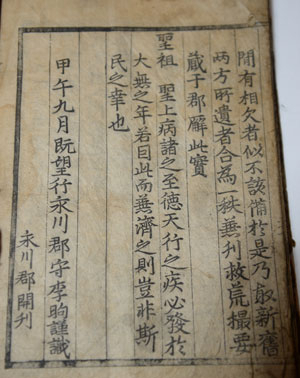 間有相欠者似不該備於是乃取新舊
兩方所遺者合為一秩兼刊救荒撮要
藏于郡廨此實
聖祖 聖上病諸之至德天行之疾必發於
大無之年若因此而兼濟之則豈非斯
民之幸也
甲午九月旣望行永川郡守李昫謹識
永川郡開刊